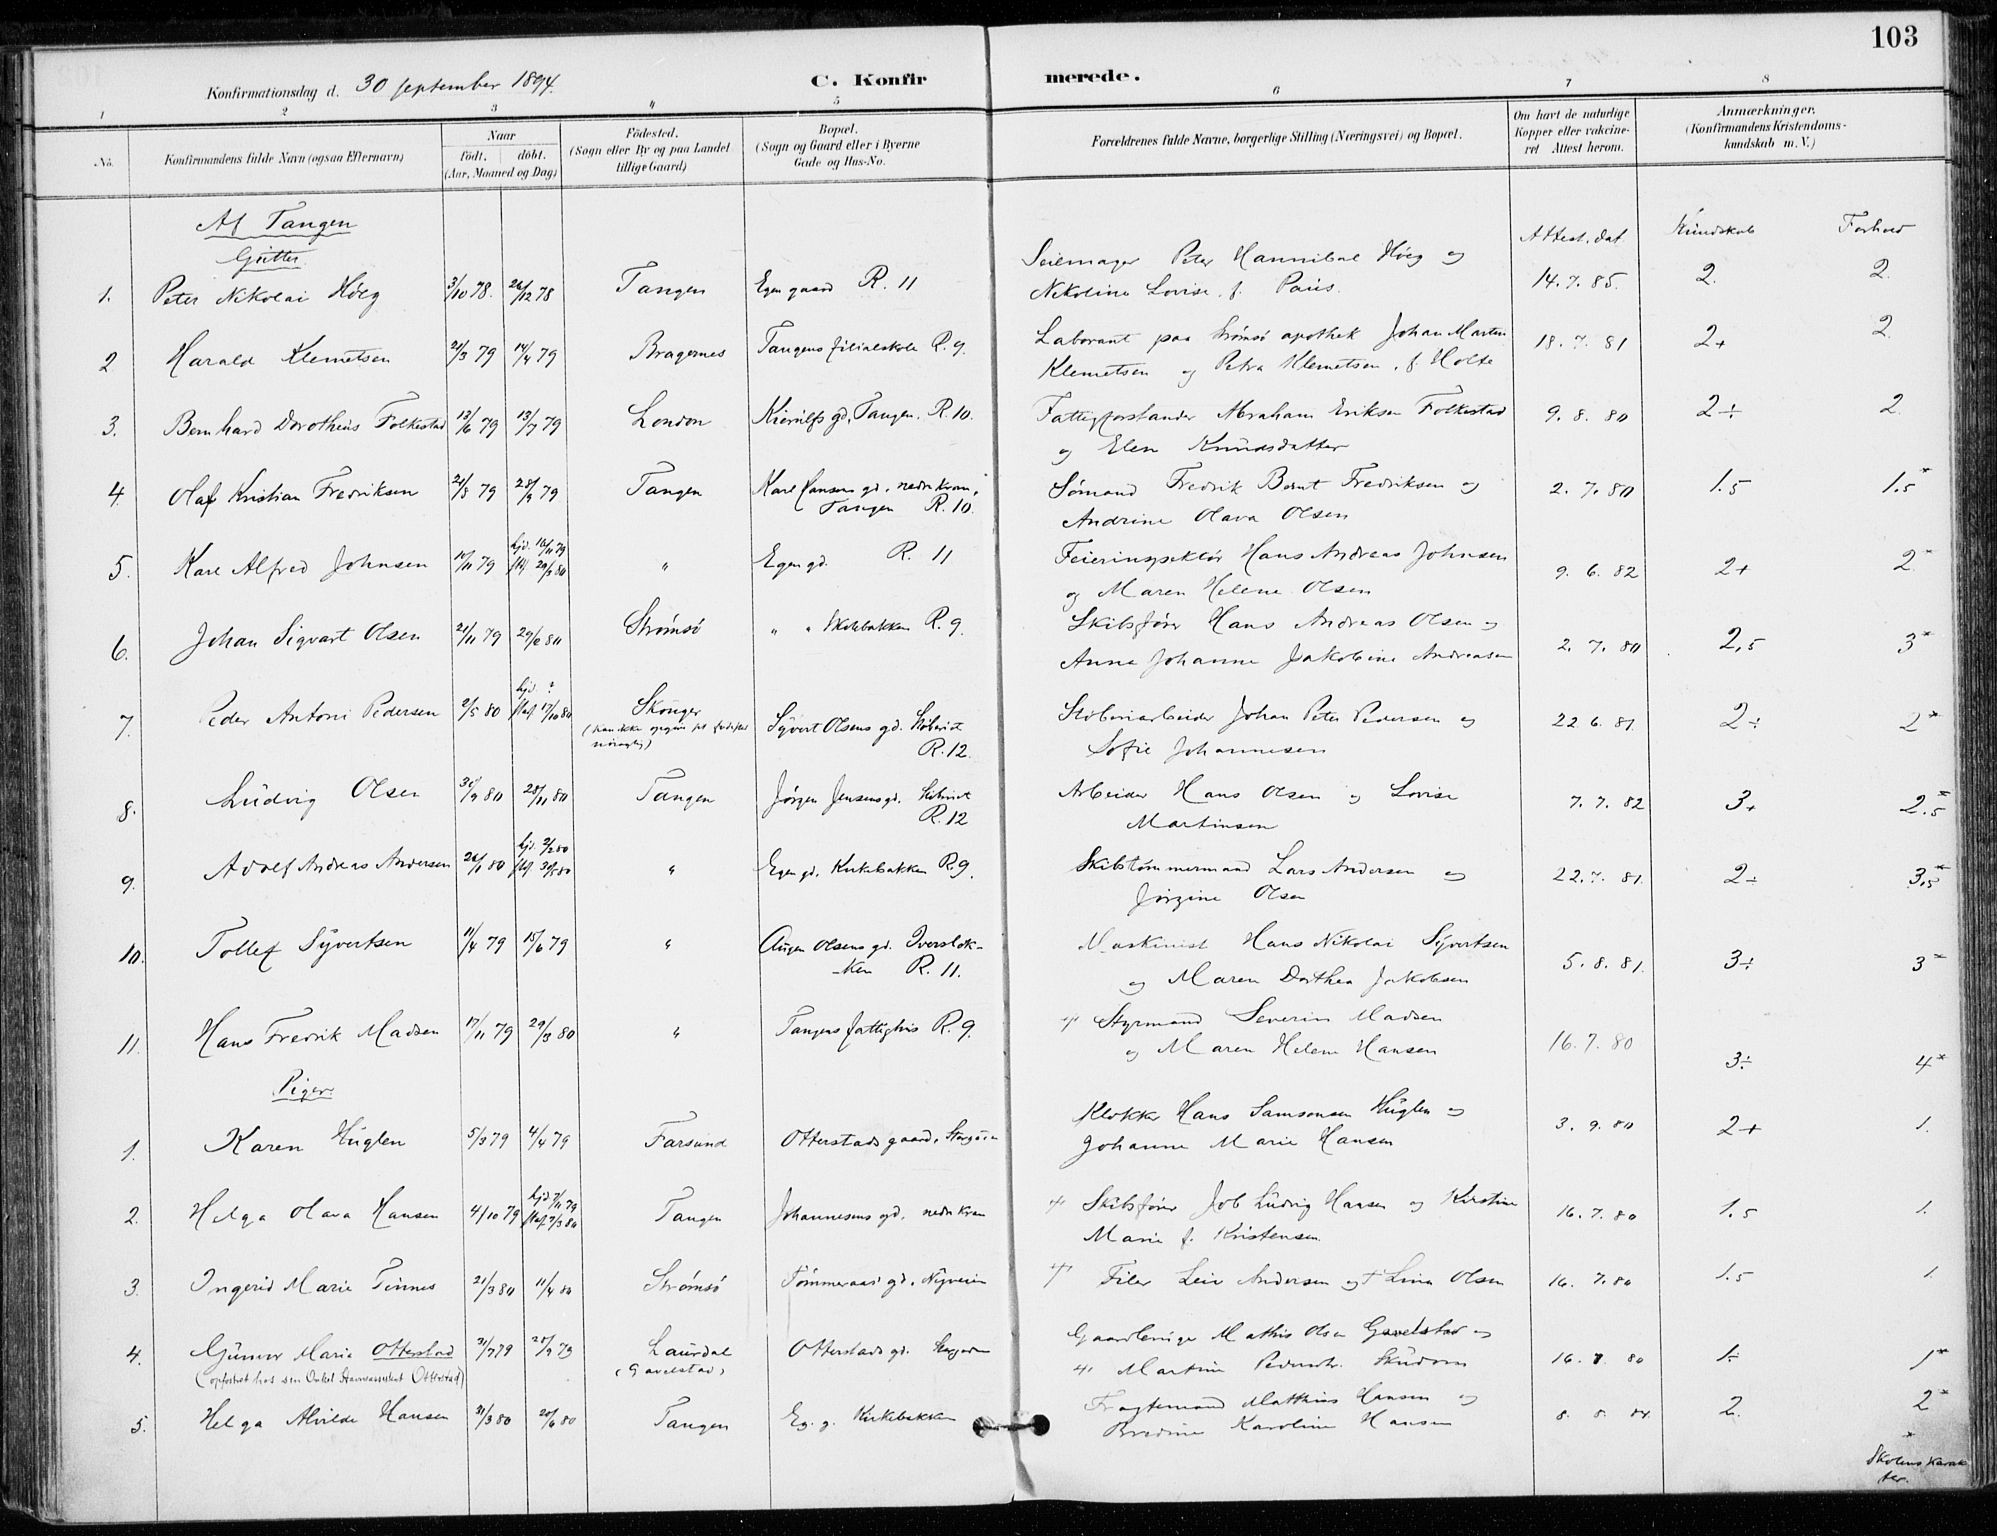 103
Konfirmationsdag d. 30 september 1894.
C. Konfirmerede.
1 2 3 4 5 6 7 8
No. Konfirmandens fulde Navn (ogsaa Efternavn)
Naar
födt. döbt.
(Aar, Maaned og Dag)
Födested.
(Sogn eller By og paa Landet
tillige Gaard)
Bopæl.
(Sogn og Gaard eller i Byerne
Gade og Hus-No.
Forældrenes fulde Navne, borgerlige Stilling (Næringsvei) og Bopæl.
Om havt de naturlige
Kopper eller vakcine-
ret Attest herom.
Anmærkninger,
(Konfirmandens Kristendoms-
kundskab m. V.)
Af Tangen
Gutter.
Attest. dat. Kundskab Forhold
1. Peter Nikolai Höeg 3/10 78. 26/12 78 Tangen Egen gaard R. 11 Seilmager Peter Hannibal Höeg og 14. 7. 85. 2. 2.
Nikoline Lovise f. Paus.
2 Harald Klemetsen 21/3 79 14/4 79 Bragernes Tangens filialskole R. 9. Laborant paa Strømsø apothek Johan Martin 18. 7. 81 2+ 2.
Klemetsen og Petra Klemetsen, f. Holte
3. Bernhard Dorotheus Folkestad 13/6 79 13/7 79 London Kierulfs gd. Tangen. R. 10. Fattigforstander Abraham Eriksen Folkestad 9. 8. 80 2÷ 2.
og Elen Knudsdatter
4. Olaf Kristian Fredriksen 21/8 79 28/9 79 Tangen Karl Hansens gd. nedre kran, Sømand Fredrik Bernt Fredriksen og 2. 7. 80 1.5 1.5*
Tangen R. 10. Andrine Olava Olsen
5. Karl Alfred Johnsen 10/11 79 hjd. 16/11 79 " Egen gd. R. 11 Feierinspektør Hans Andreas Johnsen 9. 6. 82 2+ 2*
stf. 29/3 80 og Maren Helene Olsen
6. Johan Sigvart Olsen 21/11 79 29/2 80 Strømsö " " Kirkebakken R. 9. Skibsfører Hans Andreas Olsen og 2. 7. 80 2,5 3*
Anne Johanne Jakobine Andreasen
7. Peder Antoni Pedersen 2/5 80 hjd. ? Skouger Syvert Olsens gd. Støberiet Støberiarbeider Johan Peter Pedersen og 22 6. 81 2÷ 2*
stf. 17/10 80 (kan ikke opgive sit fødested R. 12. Sofie Johannesen
nøiagtig)
8. Ludvig Olsen 30/9 80 28/11 80 Tangen Jørgen Jensens gd. Støberiet Arbeider Hans Olsen og Lovise 7. 7. 82 3+ 2.5*
R. 12 Martinsen
9. Adolf Andreas Andersen 26/1 80 hjd. 2/2 80 " Egen gd. Kirkebakken R. 9. Skibstømmermand Lars Andersen og 22. 7. 81. 2÷ 3,5*
stf. 30/5 80 Jørgine Olsen
10. Tollef Syvertsen 11/4 79 15/6 79 " Augen Olsens gd. Iversløk- Maskinist Hans Nikolai Syvertsen 5. 8. 81. 3÷ 3*
-ken R. 11. og Maren Dorthea Jakobsen
11. Hans Fredrik Madsen 17/11 79 29/3 80 " Tangens fattighus R. 9. Styrmand Severin Madsen 16. 7. 80 3÷ 4*
og Maren Helene Hansen
Piger.
1. Karen Huglen 5/3 79 4/4 79 Farsund Otterstads gaard, Storgaden Klokker Hans Samsonsen Huglen og 3. 9. 80 2+ 1.
Johanne Marie Hansen
2. Helga Olava Hansen 4/10 79 hjd. 7/11 79 Tangen Johannesens gd. nedre kran Skibsfører Job Ludvig Hansen og Kirstine 16. 7. 80 1.5 1.
stf. 7/3 80 Marie f. Kristensen.
3. Ingerid Marie Tinnes 21/3 80 11/4 80 Strømsö Tömmeraas' gd. Nyveien Filer Leiv Andersen og Lina Olsen 16. 7. 80 1.5 1.
4. Gunvor Marie Otterstad 31/7 79 28/9 79 Laurdal Otterstads gd. Storgaden Gaardbruger Mathis Olsen Gavelstad og 16. 7. 80 1÷ 1*
(opfostret hos sin Onkel Havneassistent Otterstad) (Gavelstad) Martine Pedersdr.
5. Helga Alvilde Hansen 21/3 80 20/6 80 Tangen Eg. g. Kirkebakken Fragtemand Matthias Hansen og 8. 8. 84. 2. 2*
Bredine Karoline Hansen
* Skolens karak
ter.